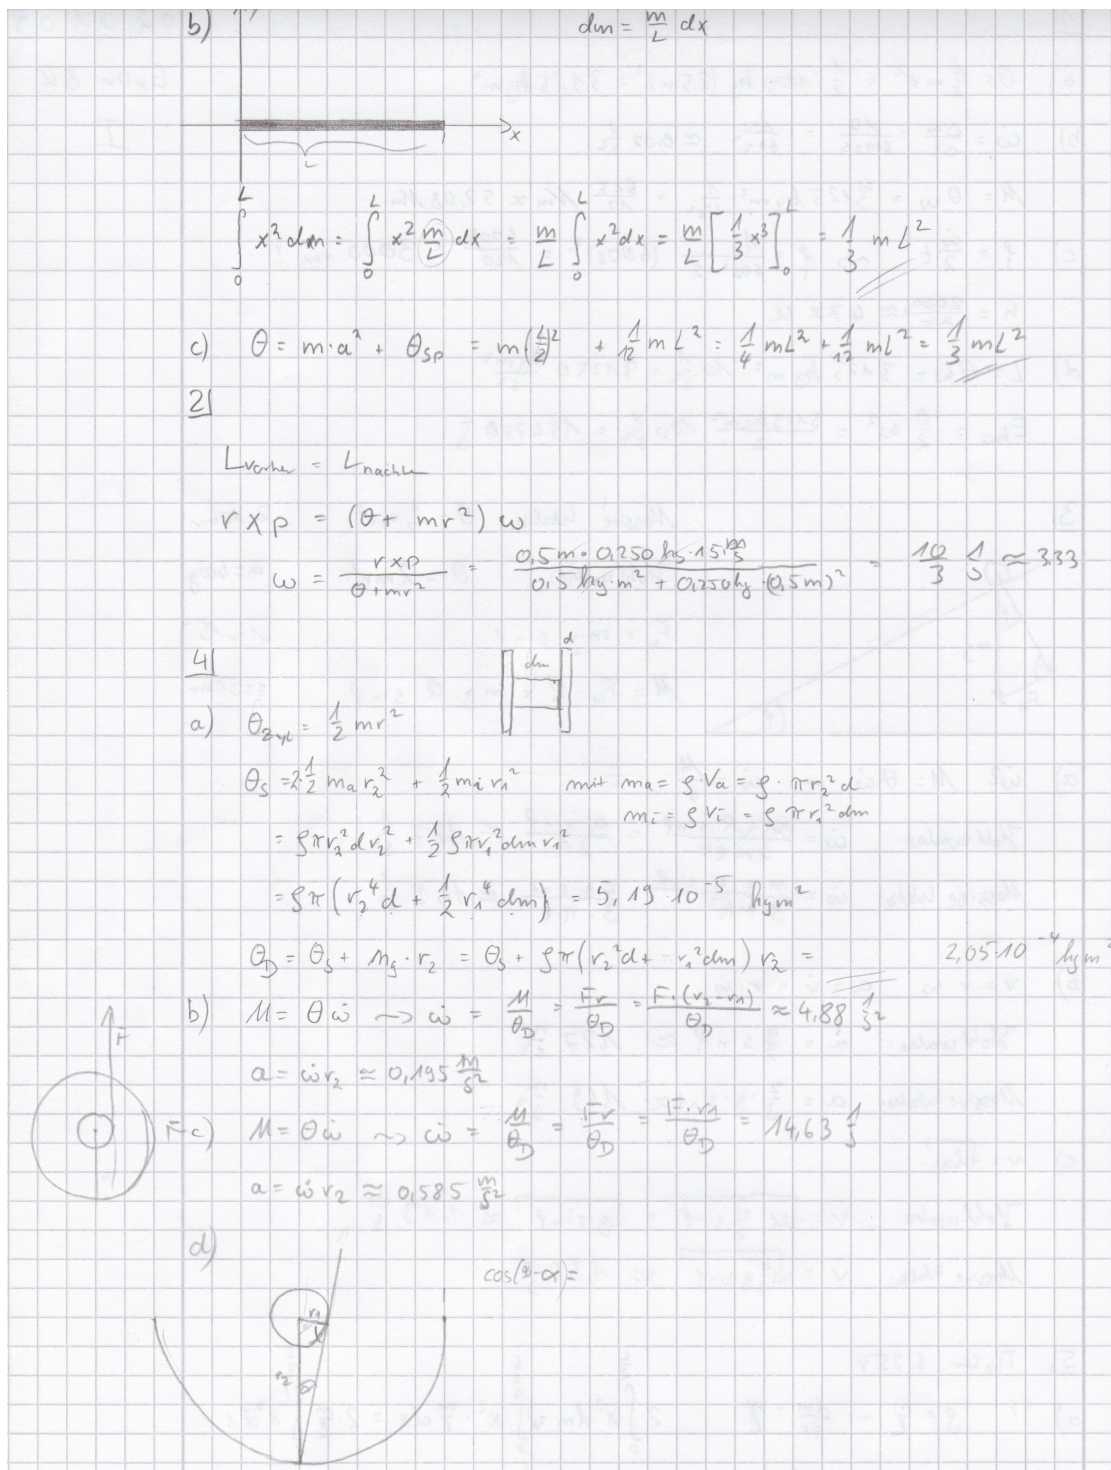 b)
dm = m/L dx
x
L
∫₀ᴸ x² dm = ∫₀ᴸ x² m/L dx = m/L ∫₀ᴸ x² dx = m/L [1/3 x³]₀ᴸ = 1/3 mL²
c) Θ = m·a² + Θ_Sp = m(L/2)² + 1/12 mL² = 1/4 mL² + 1/12 mL² = 1/3 mL²
2)
L_vorher = L_nachher
r × p = (Θ + mr²) ω
ω = (r × p)/(Θ + mr²) = (0,5m · 0,250kg · 15 m/s)/(0,5 kg·m² + 0,250kg · (0,5m)²) = 10/3 1/s ≈ 3.33
4)
d
dm
a) Θ_Zyl = 1/2 mr²
Θ_S = 2·1/2 m_a r₂² + 1/2 m_i r₁² mit m_a = ρ·V_a = ρ · πr₂²d
m_i = ρ V_i = ρ πr₁²dm
= ρπr₂²d r₂² + 1/2 ρπr₁²dm r₁²
= ρπ(r₂⁴d + 1/2 r₁⁴dm) = 5,19·10⁻⁵ kgm²
Θ_D = Θ_S + m_s · r₂ = Θ_S + ρπ(r₂²d + r₁²dm) r₂ = 2,05·10⁻⁴ kgm²
b) M = Θω̇ ⇝ ω̇ = M/Θ_D = Fr/Θ_D = F·(r₂-r₁)/Θ_D ≈ 4,88 1/s²
F
a = ω̇r₂ ≈ 0,195 m/s²
c) M = Θω̇ ⇝ ω̇ = M/Θ_D = Fr/Θ_D = F·r₁/Θ_D = 14,63 1/s
F
a = ω̇r₂ ≈ 0,585 m/s²
d)
r₁
r₂